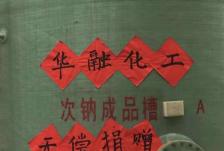 华融化工
次钠成品槽 A
无偿捐赠